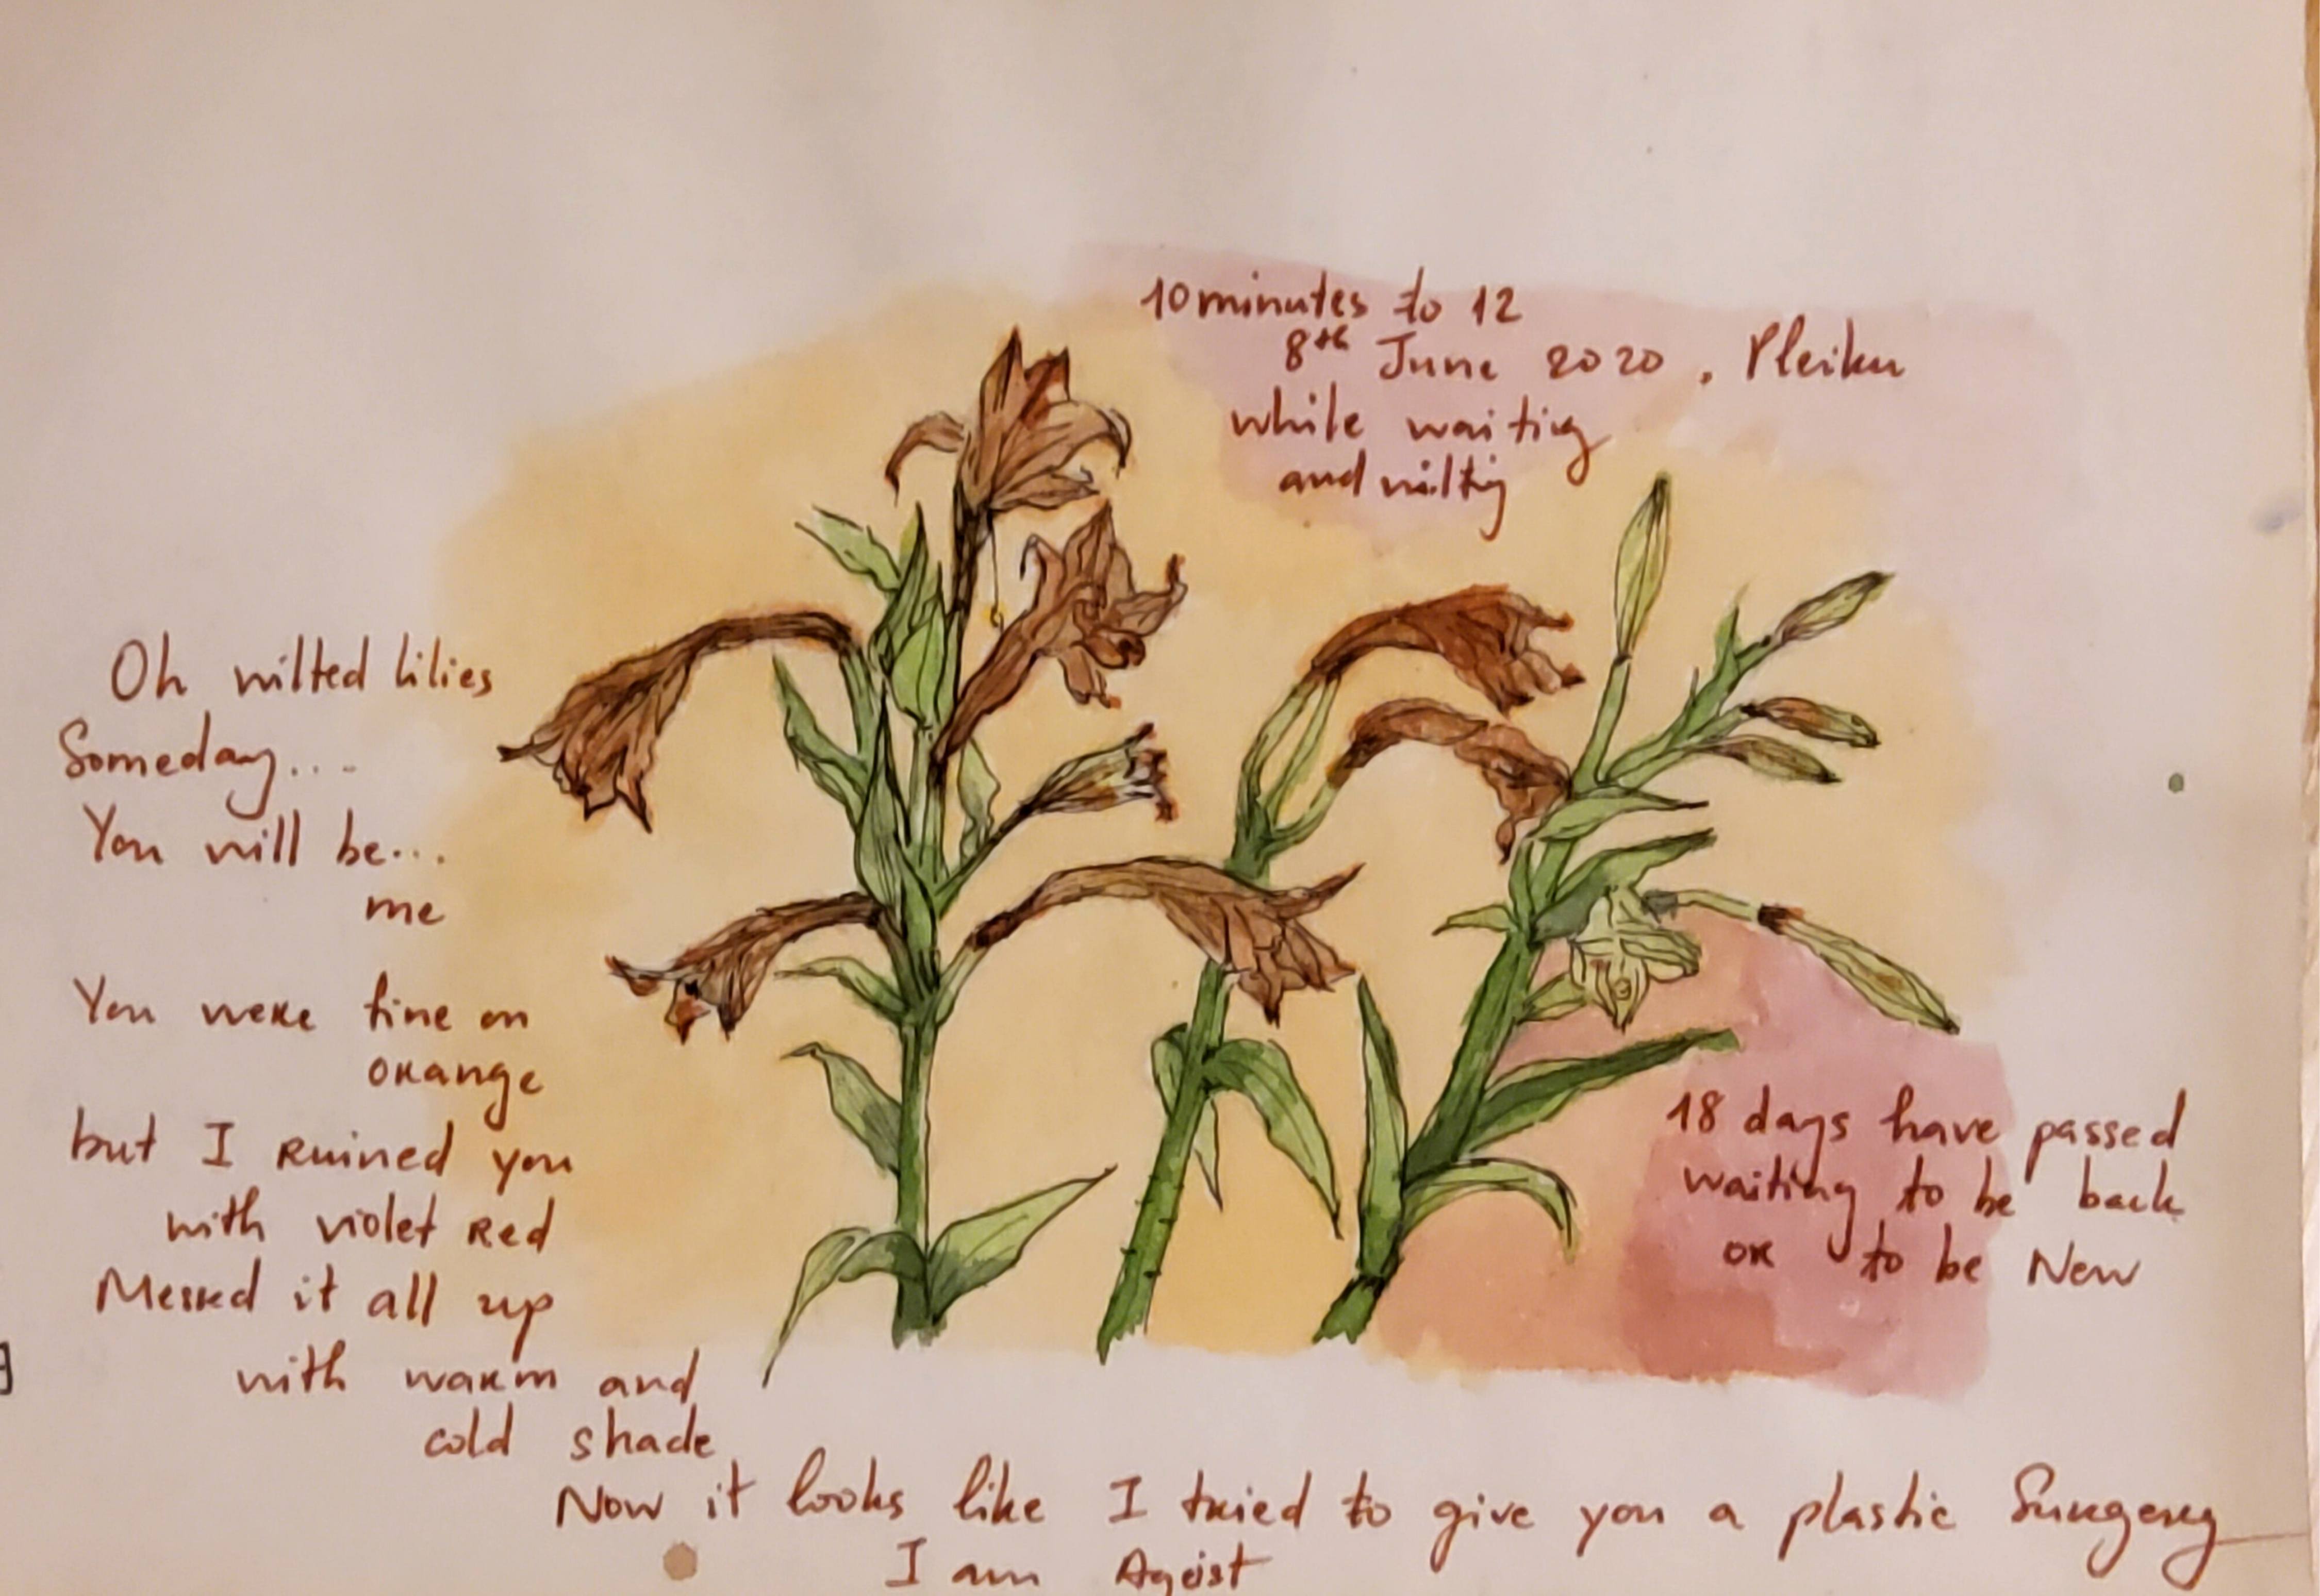 10 minutes to 12
8th June 2020, Pleiku
while waitig
and wiltig
Oh wilted lilies
Someday....
You will be...
me
You were fine on
orange
but I ruined you
with violet red
Messed it all up
with warm and
cold shade
18 days have passed
waiting to be back
or to be New
Now it looks like I tried to give you a plastic Surgery
I am Ageist